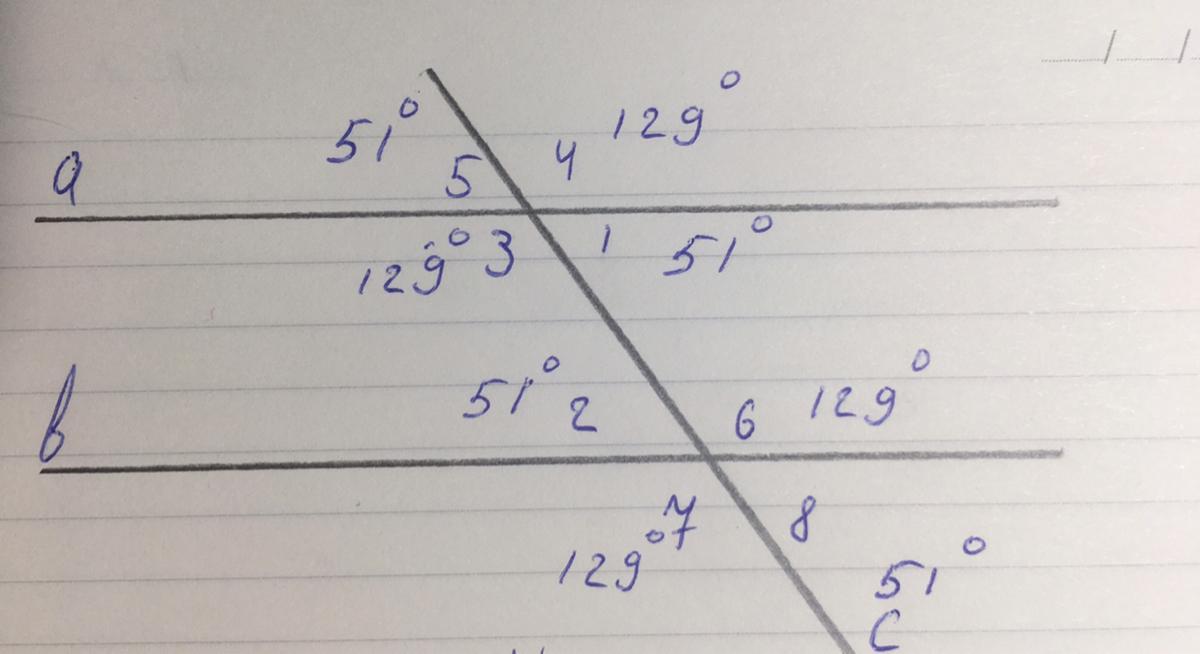 51° 5 4 129°
а
129° 3 1 51°
51° 2 6 129°
в
129° 7 8 51°
с